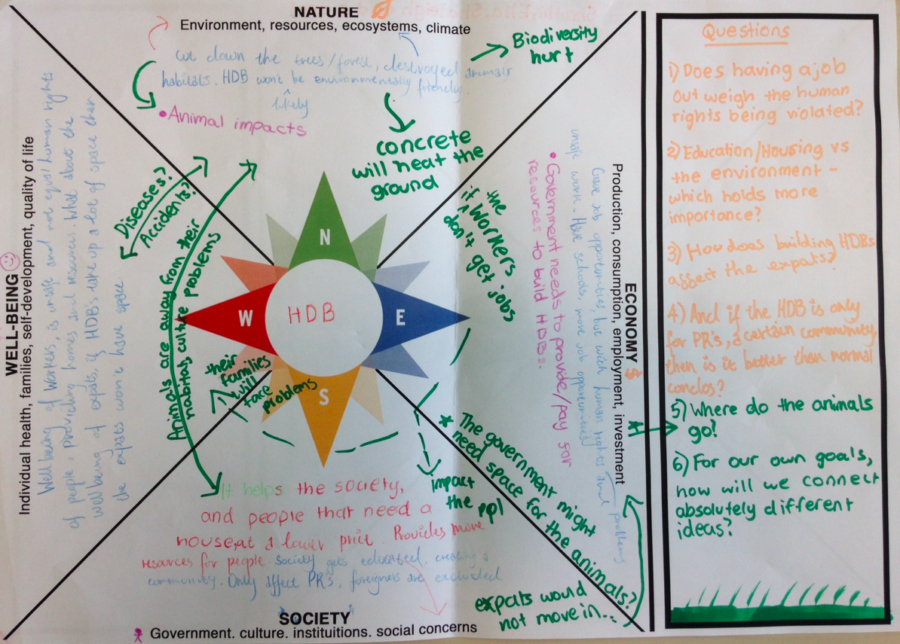 NATURE
Environment, resources, ecosystems, climate
down the trees/forest, destroyed animals
habitats. HDB won't be environmentally friendly.
likely
• Animal impacts
Biodiversity
hurt
concrete
will heat the
ground
WELL-BEING
Individual health, families, self-development, quality of life
Well being of workers, is unsafe and not equal human rights
of people, providing homes and resources. What about the
well being of expats, if HDB's take up a lot of space then
the expats wonne have space
Diseases?
Accidents?
Animals are away from their
habitat, culture problems
N
W
E
S
HDB
their
families
will
face
problems
if the workers
don't get jobs,
ECONOMY
Production, consumption, employment, investment
job opportunities, but with human rights
unsafe work. Have schools, more job opportunities
problems
• Government needs to provide/pay for
resources to build HDBs.
* The government might
need space for the animals?
impact
the ppl
It helps the society,
and people that need a
house at a lower price. Provides more
resources for people society gets educated, creating a
community. Only affect PR's, foreigners are excluded
expats would
not move in..
SOCIETY
Government. culture. instituitions. social concerns
Questions
1) Does having a job
out weigh the human
rights being violated?
2) Education/Housing vs
the environment -
which holds more
importance?
3) How does building HDBs
affect the expats?
4) And if the HDB is only
for PR's, a certain community,
then is it better than normal
condos?
5) Where do the animals
go?
6) For our own goals,
how will we connect
absolutely different
ideas?